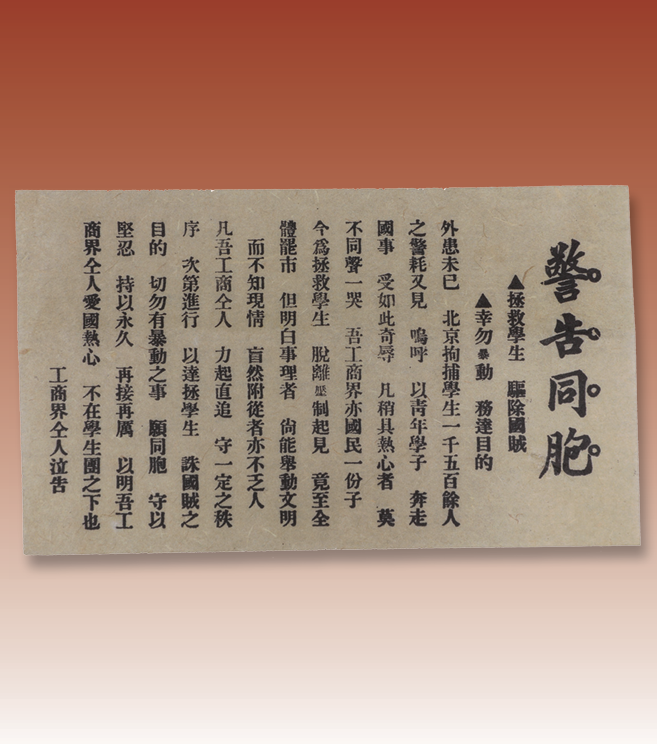 警告同胞
▲拯救學生　驅除國賊
▲幸勿暴動　務達目的
外患未已　北京拘捕學生一千五百餘人
之警耗又見　嗚呼　以靑年學子　奔走
國事　受如此奇辱　凡稍具熱心者　莫
不同聲一哭　吾工商界亦國民一份子
今爲拯救學生　脫離壓制起見　竟至全
體罷市　但明白事理者　尙能舉動文明
而不知現情　盲然附從者亦不乏人
凡吾工商仝人　力起直追　守一定之秩
序　次第進行　以達拯學生　誅國賊之
目的　切勿有暴動之事　願同胞　守以
堅忍　持以永久　再接再厲　以明吾工
商界仝人愛國熱心　不在學生團之下也
工商界仝人泣告